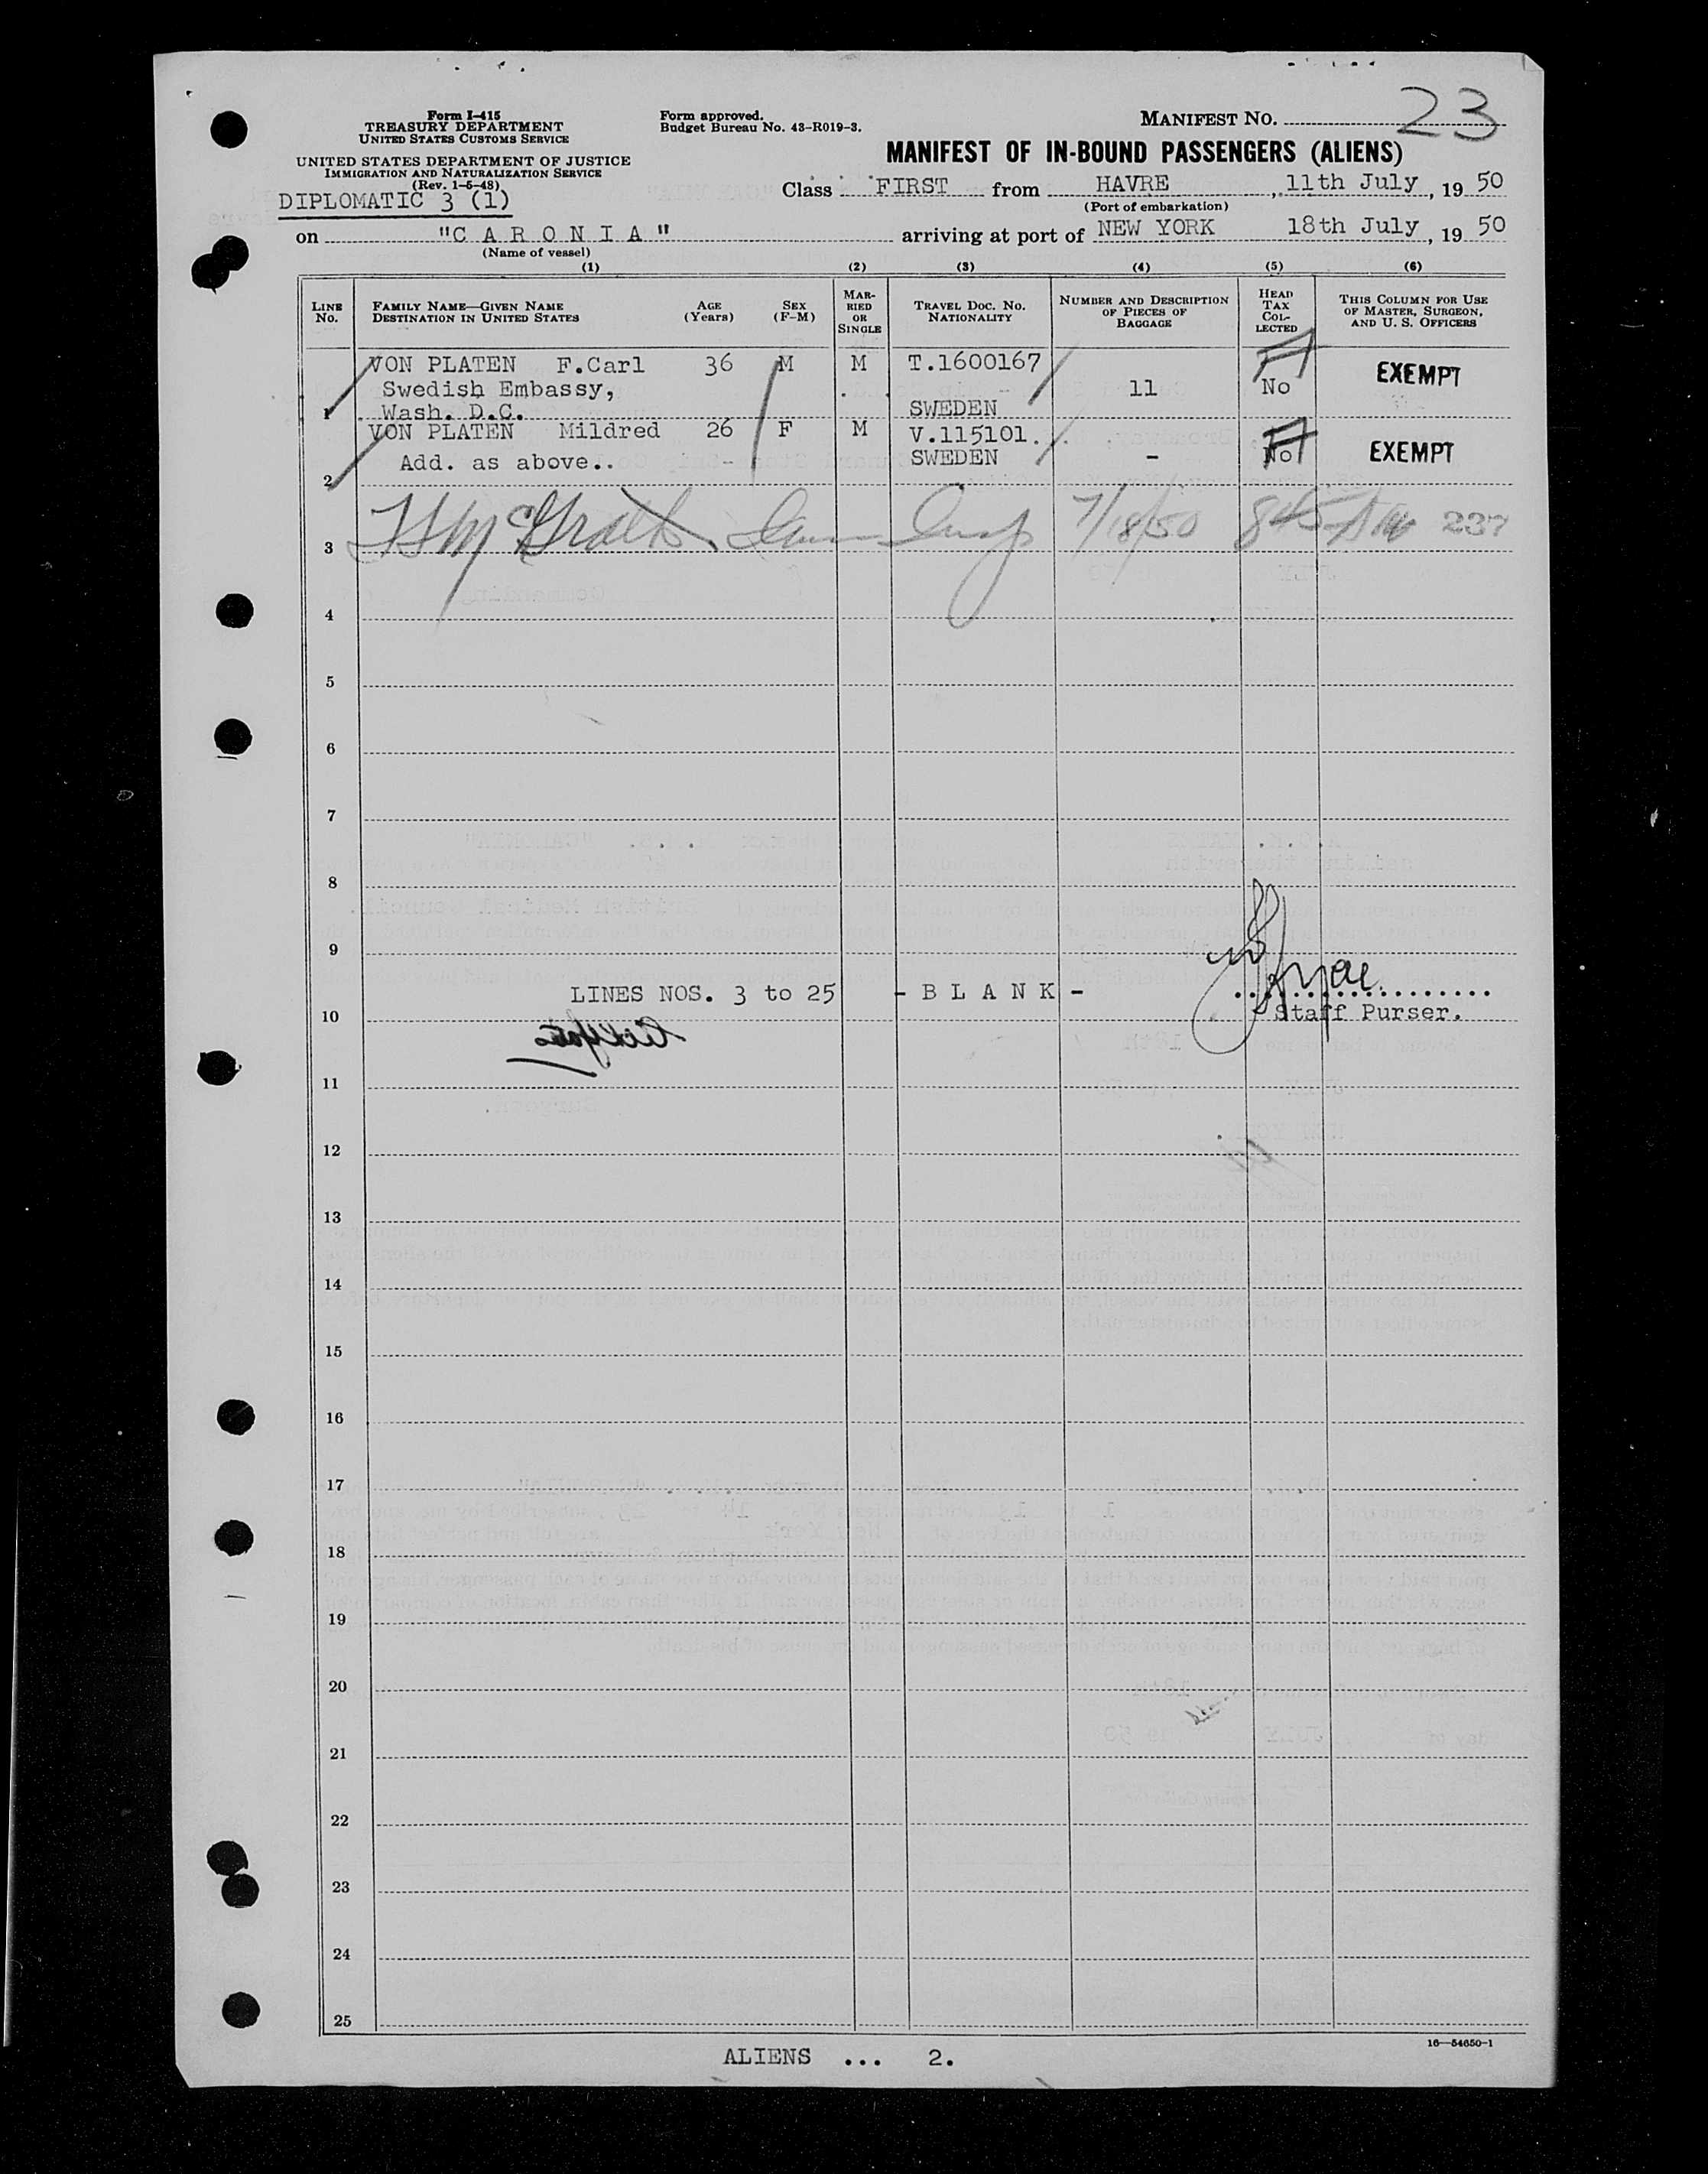 Form I-415
TREASURY DEPARTMENT
UNITED STATES CUSTOMS SERVICE
UNITED STATES DEPARTMENT OF JUSTICE
IMMIGRATION AND NATURALIZATION SERVICE
(Rev. 1-5-48)
DIPLOMATIC 3 (1)
Form approved.
Budget Bureau No. 43-R019-3.
MANIFEST NO. 23
MANIFEST OF IN-BOUND PASSENGERS (ALIENS)
Class FIRST from HAVRE, 11th July, 19 50
(Port of embarkation)
on "C A R O N I A" arriving at port of NEW YORK 18th July, 19 50
(Name of vessel)
(1) (2) (3) (4) (5) (6)
LINE No. FAMILY NAME—GIVEN NAME DESTINATION IN UNITED STATES AGE (Years) SEX (F-M) MARRIED OR SINGLE TRAVEL DOC. NO. NATIONALITY NUMBER AND DESCRIPTION OF PIECES OF BAGGAGE HEAD TAX COLLECTED THIS COLUMN FOR USE OF MASTER, SURGEON, AND U. S. OFFICERS
VON PLATEN F.Carl 36 M M T.1600167 EXEMPT
Swedish Embassy, 11 No
1 Wash. D.C. SWEDEN
VON PLATEN Mildred 26 F M V.115101. EXEMPT
Add. as above.. SWEDEN - No
2
3 McGrath 7/18/50 237
4
5
6
7
8
9
LINES NOS. 3 to 25 - B L A N K -
10 Staff Purser.
11
12
13
14
15
16
17
18
19
20
21
22
23
24
25
16—54650-1
ALIENS ... 2.